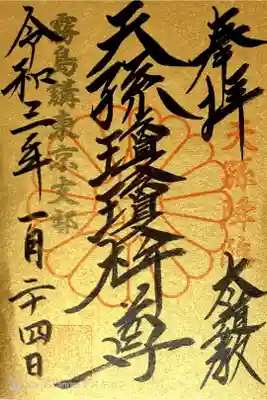 奉拝
天孫降臨
天孫瓊瓊杵尊
霧島講東京支部
令和三年一月二十四日